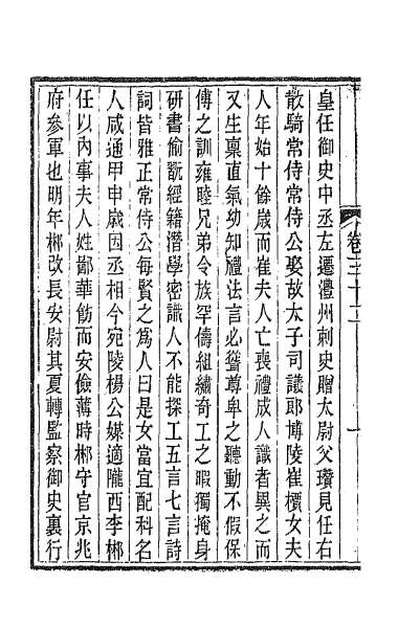 皇任御史中丞左遷澧州刺史贈太尉父瓚見任右
散騎常侍常侍公娶故太子司議郎博陵崔檟女夫
人年始十餘歲而崔夫人亡喪禮成人識者異之而
又生稟直氣幼知禮法言必聳尊卑之聽動不假保
傅之訓雍睦兄弟令族罕儔組繡奇工之暇獨掩身
研書偷翫經籍潛學密識人不能探工五言七言詩
詞皆雅正常侍公每賢之爲人曰是女當宜配科名
人咸通甲申歲因丞相今宛陵楊公媒適隴西李郴
任以內事夫人姓鄙華飭而安儉薄時郴守官京兆
府參軍也明年郴改長安尉其夏轉監察御史裏行
卷三十二